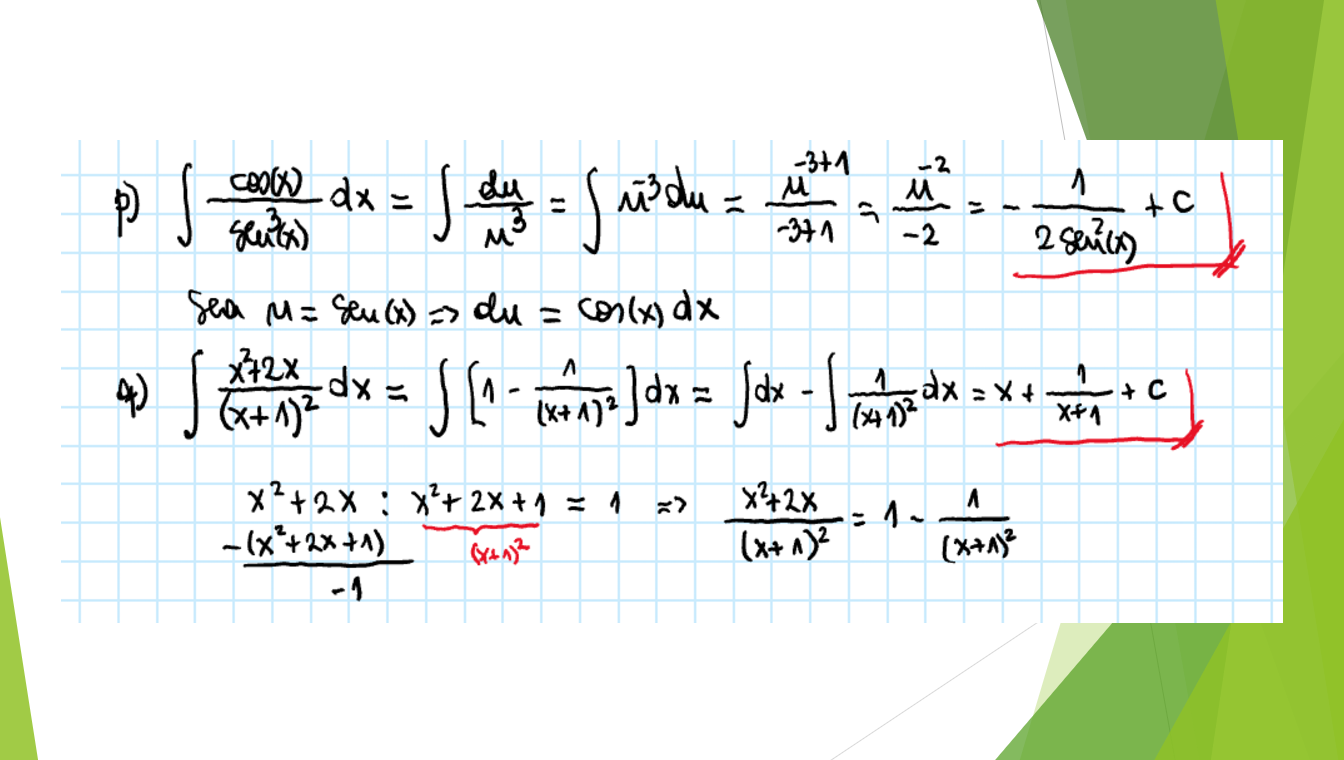 p) ∫ cos(x)/sen³(x) dx = ∫ du/u³ = ∫ u⁻³ du = u⁻³⁺¹/-3+1 = u⁻²/-2 = - 1/2 sen²(x) + C
Sea u = sen(x) => du = cos(x) dx
q) ∫ x²+2x/(x+1)² dx = ∫ [1 - 1/(x+1)²] dx = ∫ dx - ∫ 1/(x+1)² dx = x + 1/x+1 + C
x² + 2x : x² + 2x + 1 = 1 => x²+2x/(x+1)² = 1 - 1/(x+1)²
-(x² + 2x + 1) (x+1)²
-1